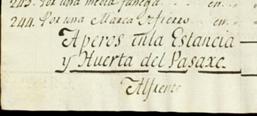 243. Por una media fanega ... en ...
244. Por una Marca de fierro .. en ...
Aperos en la Estancia
y Huerta del Pasaxe.